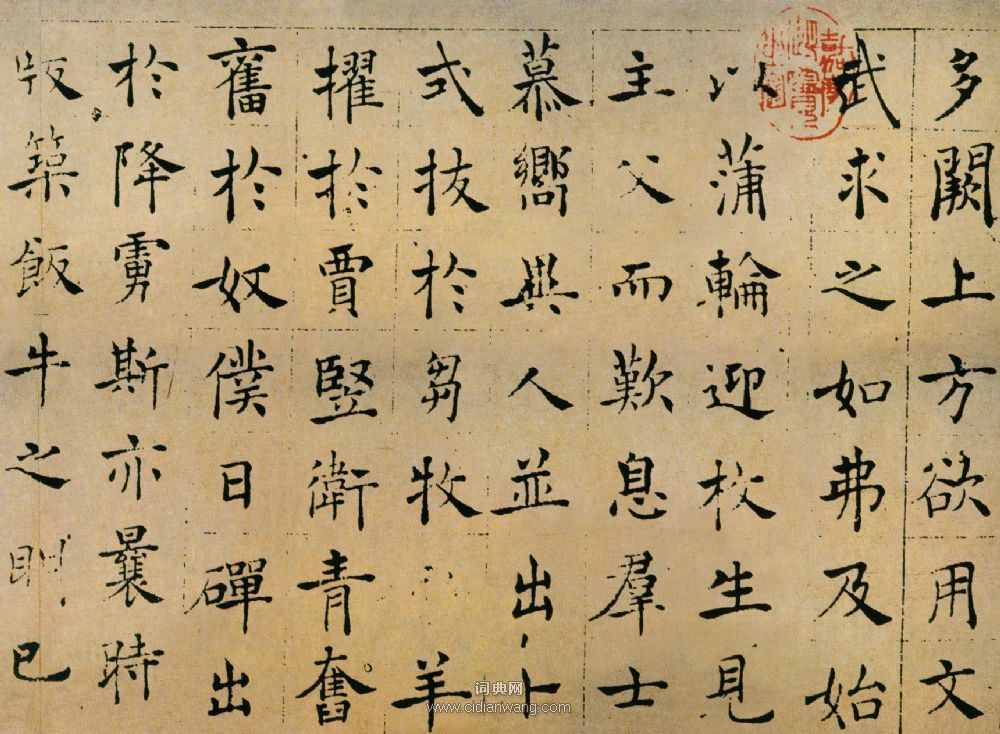 多闕上方欲用文
武求之如弗及始
以蒲輪迎枚生見
主父而歎息羣士
慕嚮異人並出卜
式拔於芻牧羊
擢於賈豎衛青奮
奮於奴僕日磾出
於降虜斯亦曩時
版築飯牛之明已
词典网
www.cidianwang.com